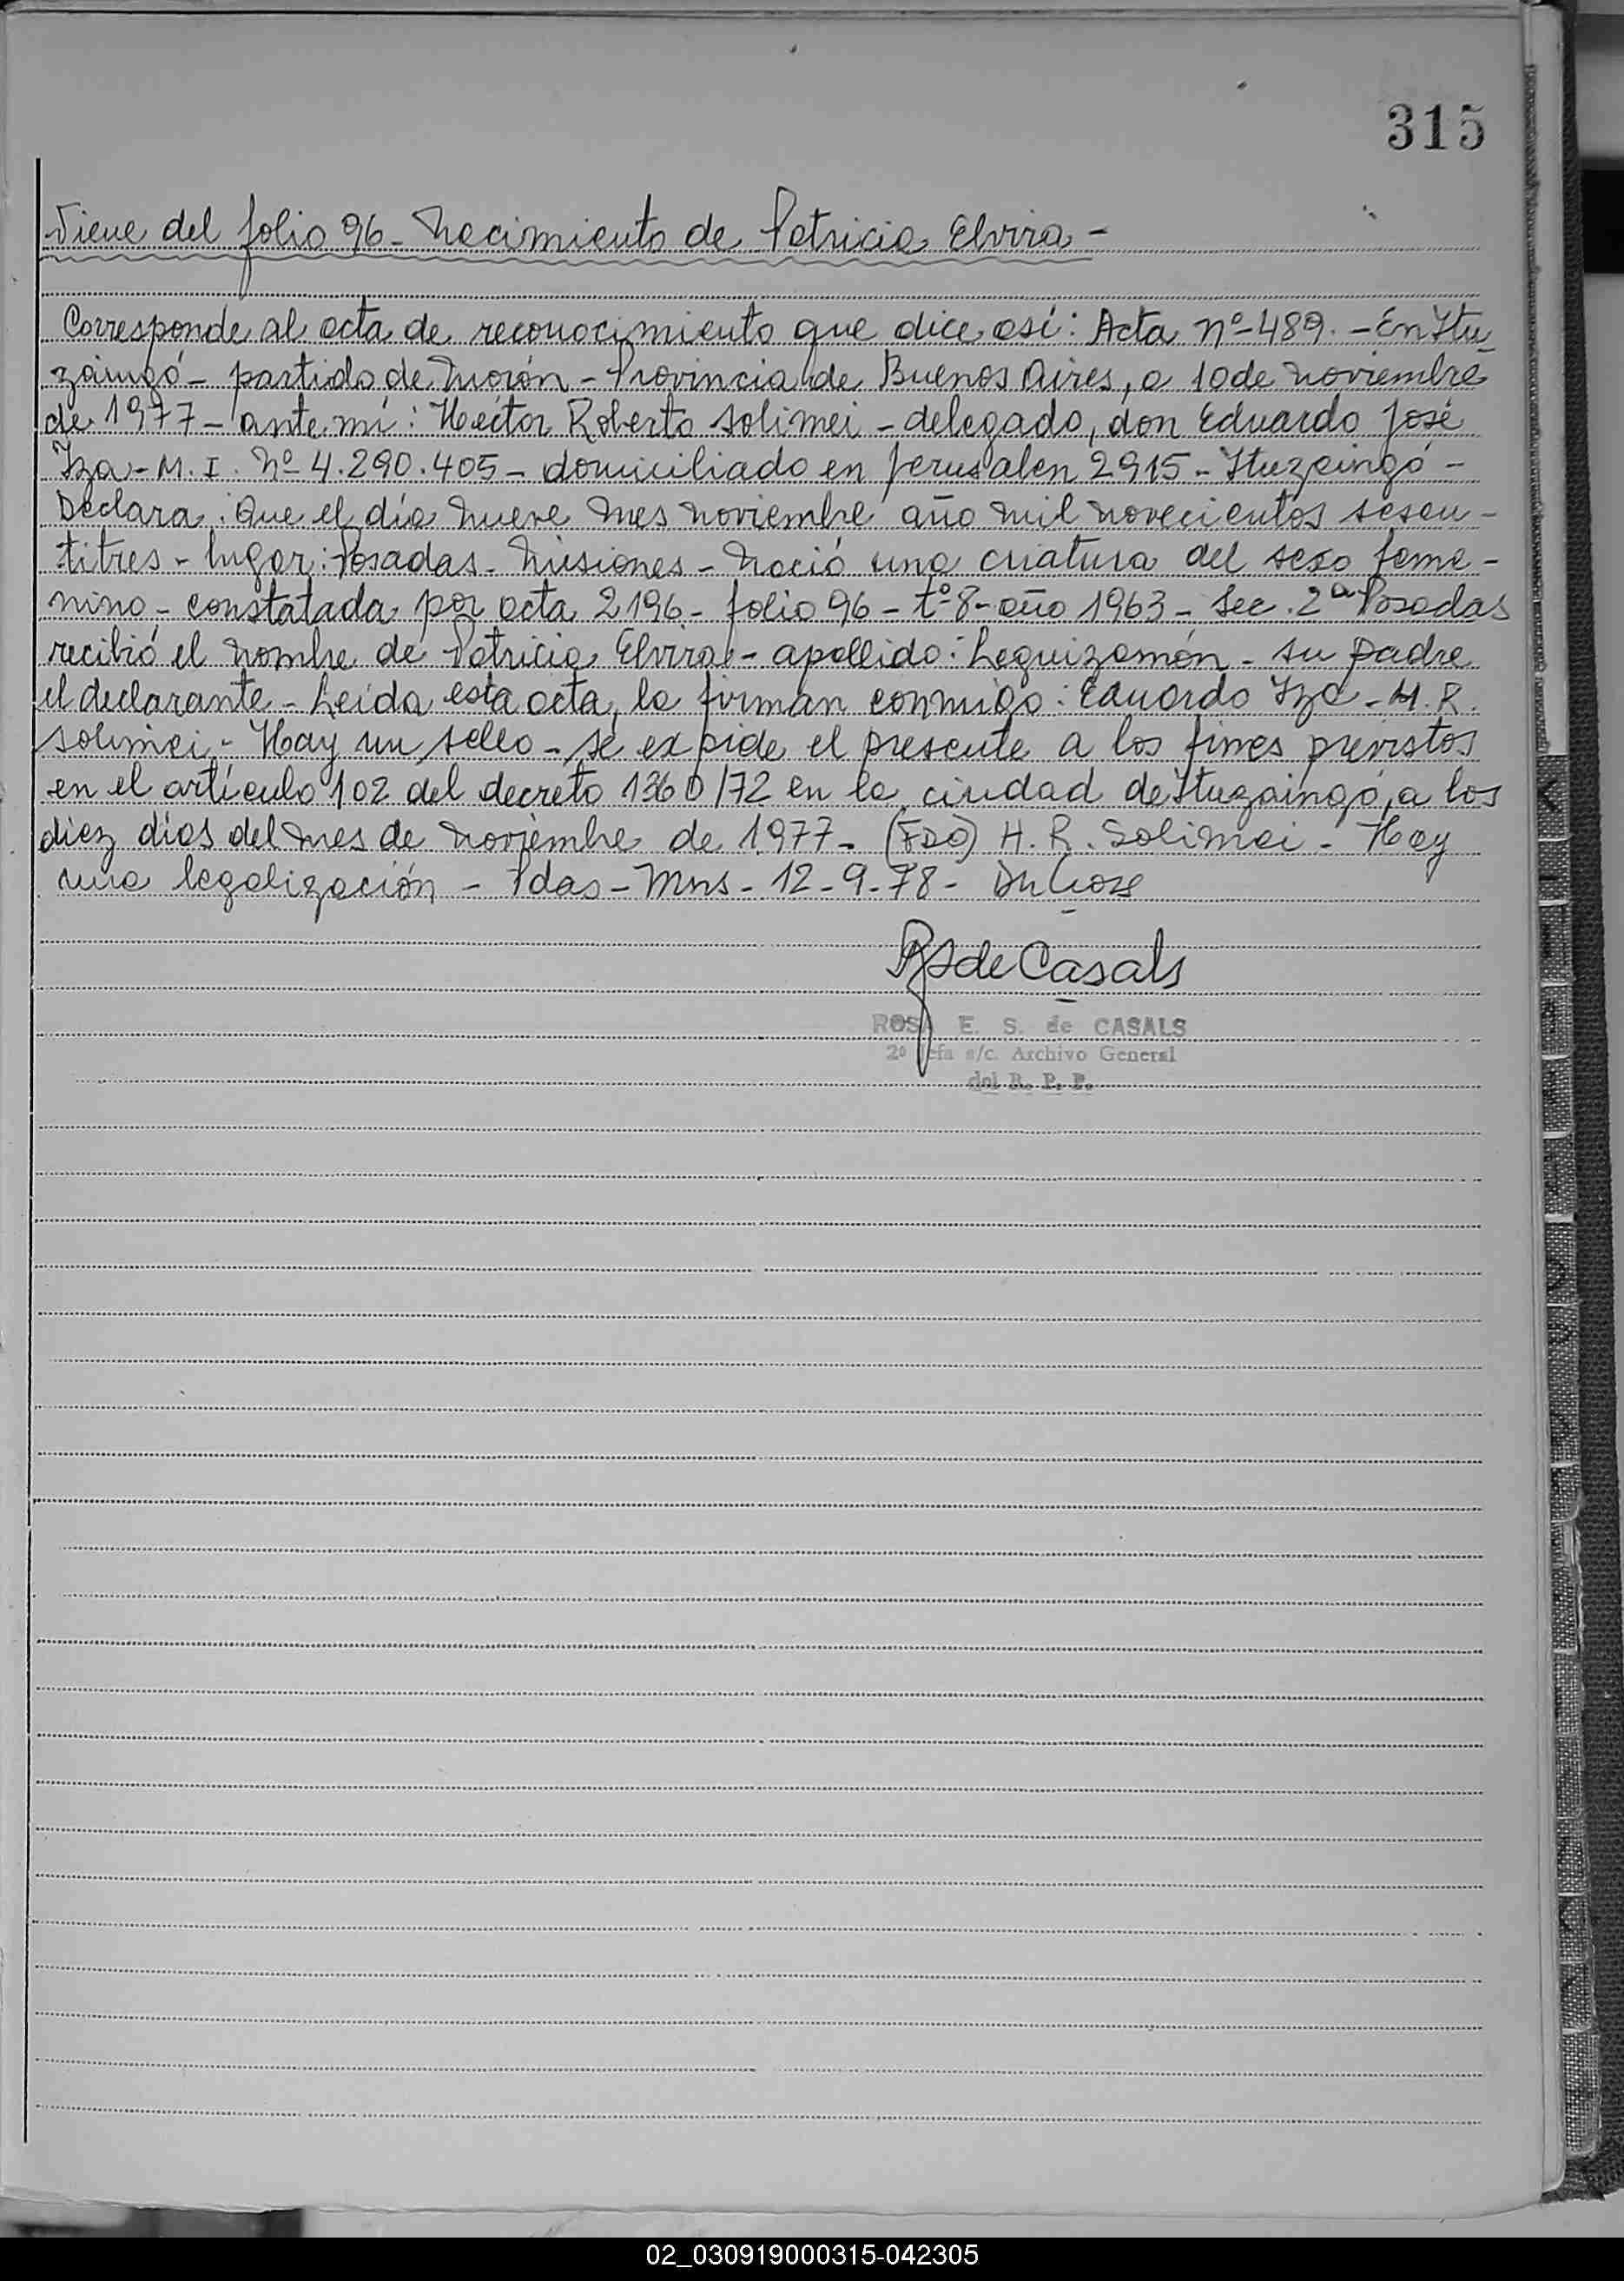 315
Viene del folio 96 - Nacimiento de Patricia Elvira -
Corresponde al acta de reconocimiento que dice así: Acta nº 489. - En Itu
zaingó - partido de Morón - Provincia de Buenos Aires, a 10 de noviembre
de 1977 - ante mí: Héctor Roberto Solimei - delegado, don Eduardo José
Iza - M. I. Nº 4.290.405 - domiciliado en Jerusalen 2915 - Ituzaingó -
Declara: Que el día nueve mes noviembre año mil novecientos sesen-
titres - lugar: Posadas - Misiones - Nació una criatura del sexo feme-
nino - constatada por acta 2196 - folio 96 - tº 8 - año 1963 - Sec. 2ª Posadas
recibió el nombre de Patricia Elvira - apellido: Leguizamón - su padre
el declarante - Leída esta acta, la firman conmigo: Eduardo Iza - H. R.
Solimei - Hay un sello - se expide el presente a los fines previstos
en el artículo 102 del decreto 1360/72 en la ciudad de Ituzaingó, a los
diez días del mes de noviembre de 1977 - (FDO) H. R. Solimei - Hay
una legalización - Pdas - Mns - 12-9-78 -
RSdeCasals
ROSA E. S. de CASALS
2º Jefa a/c. Archivo General
del R. P. P.
02_030919000315-042305